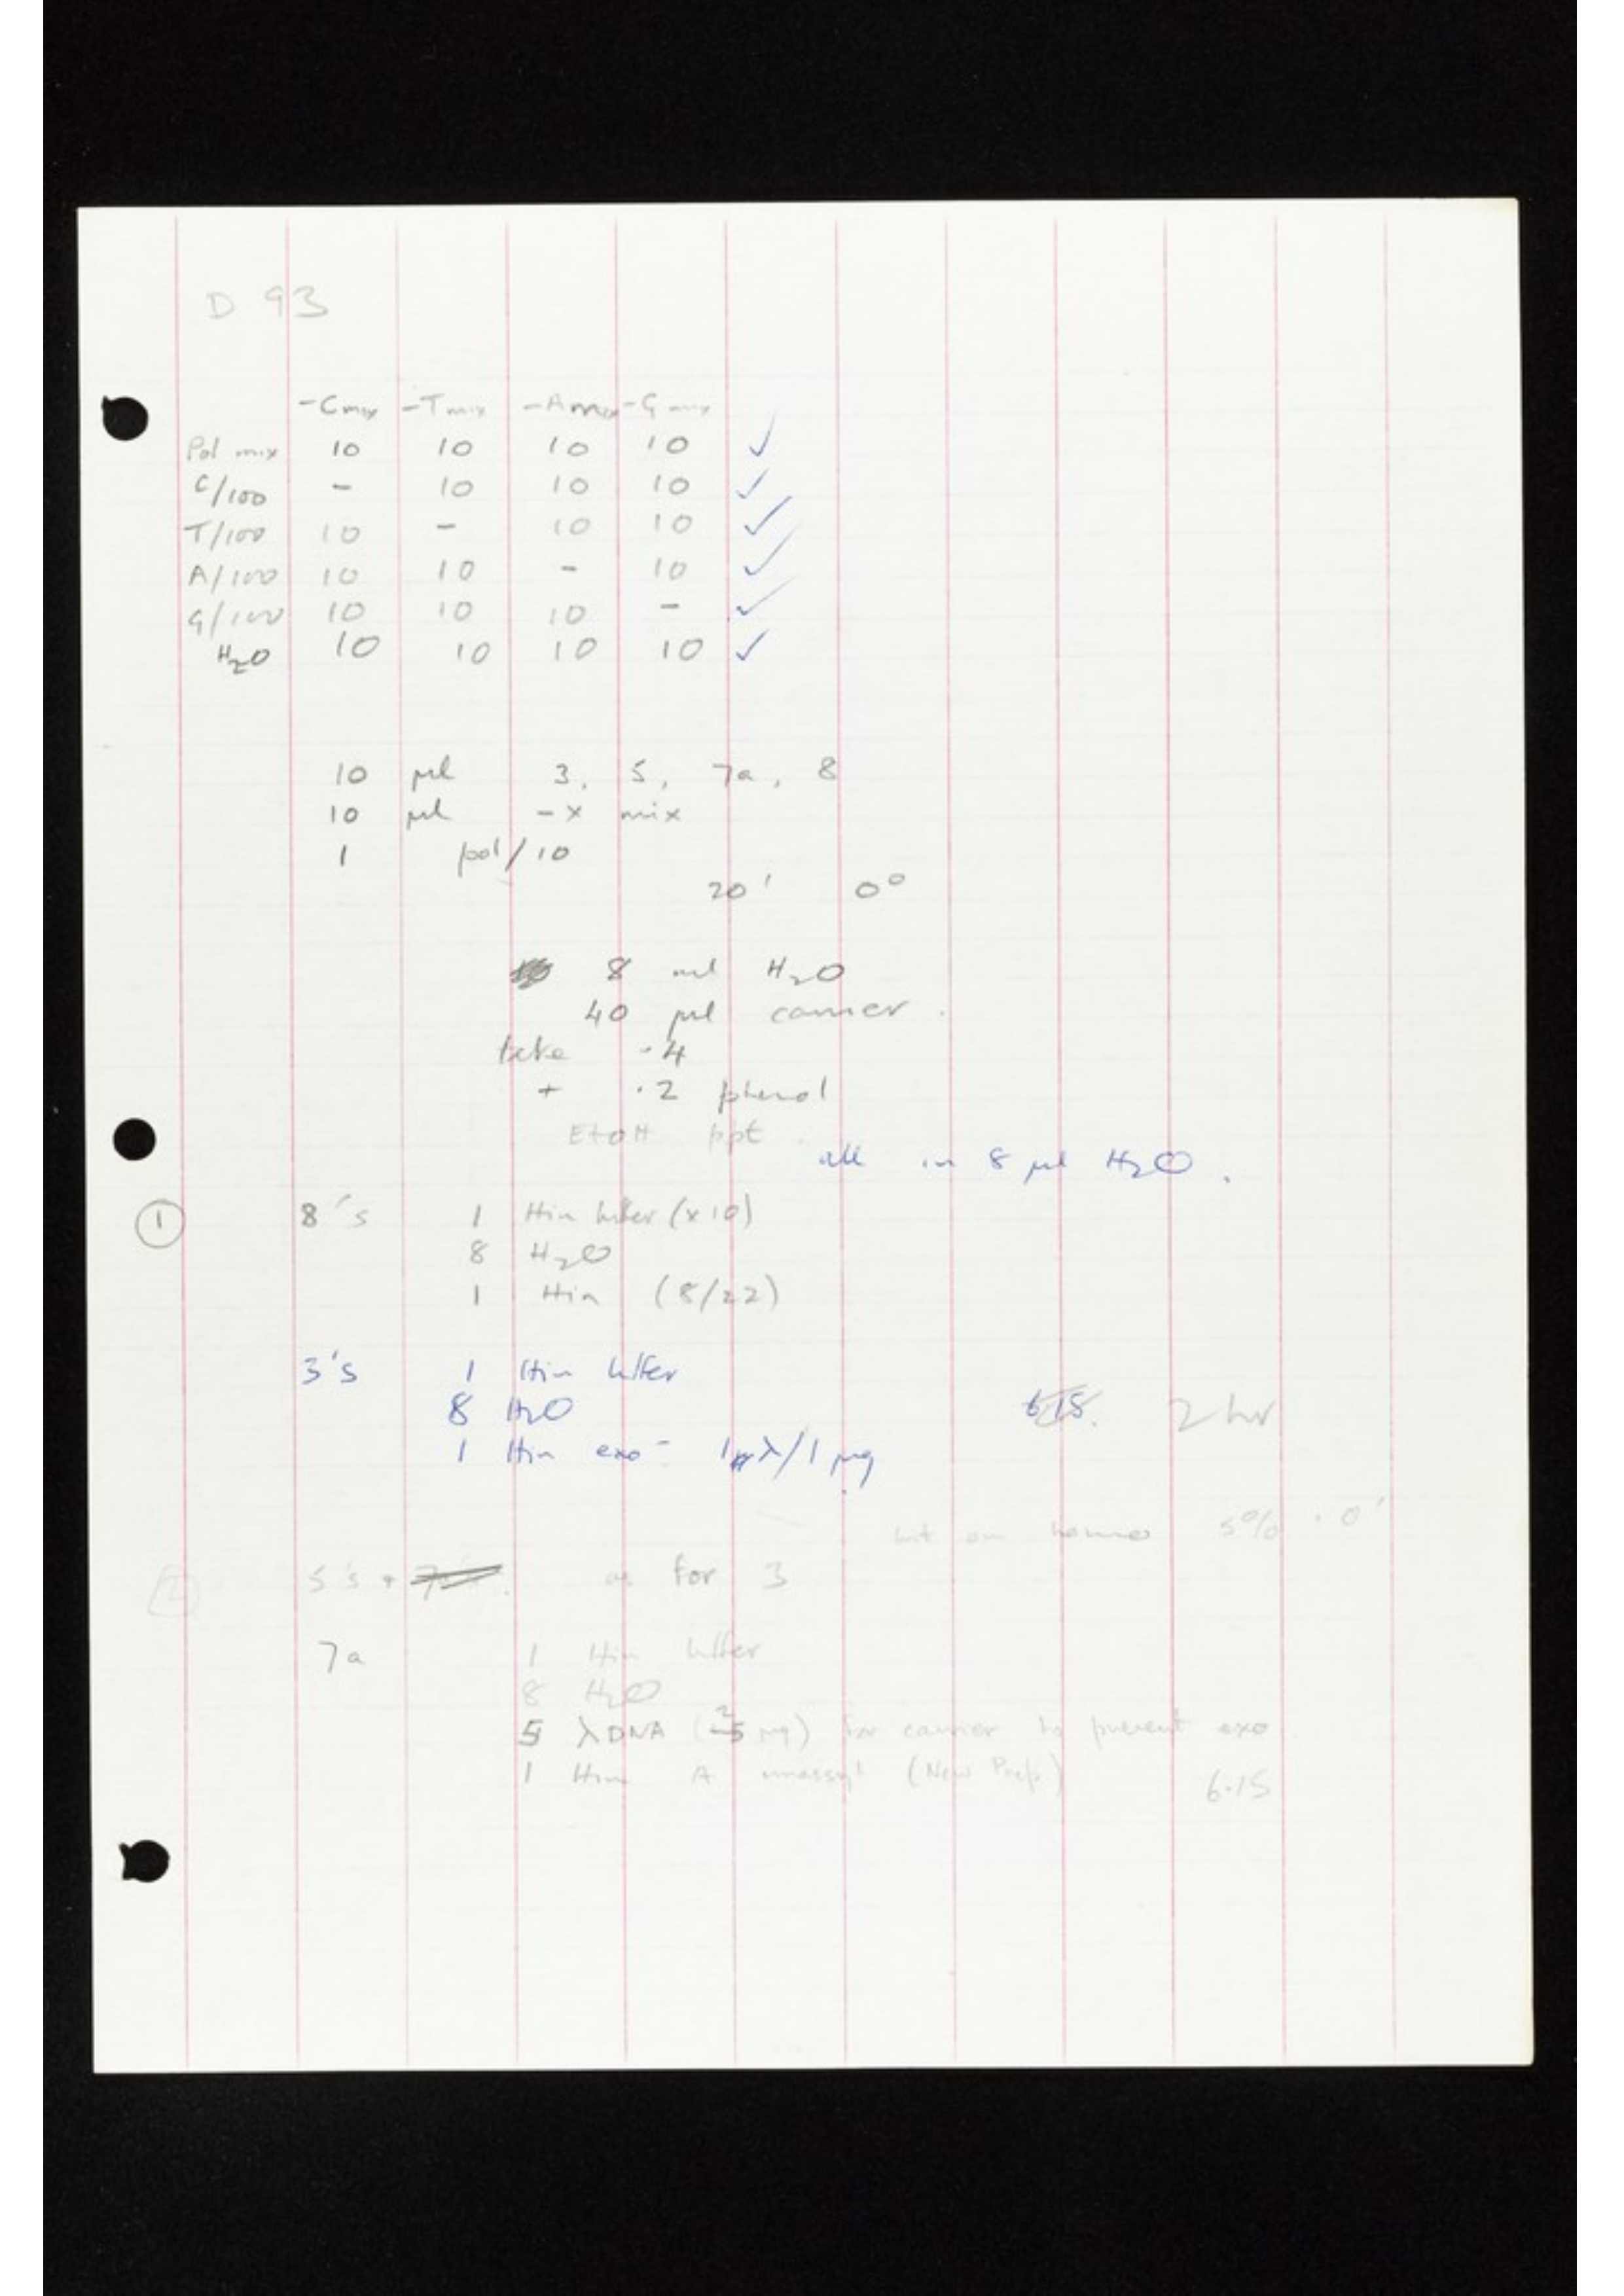 D 93
-Cmix -Tmix -Amix -Gmix
Pol mix 10 10 10 10 ✓
C/100 - 10 10 10 ✓
T/100 10 - 10 10 ✓
A/100 10 10 - 10 ✓
G/100 10 10 10 - ✓
H2O 10 10 10 10 ✓
10 µl 3, 5, 7a, 8
10 µl -x mix
1 pol/10
20' 0°
8 ml H2O
40 µl carrier.
take .4
+ .2 phenol
EtOH ppt.
all in 8 µl H2O.
① 8's 1 Hin buffer (x10)
8 H2O
1 Hin (8/22)
3's 1 Hin buffer
8 H2O 6.15. 2 hr
1 Hin exo- 1 λ/1 µg
5% . 0'
2 5's + as for 3
7a 1 Hin buffer
8 H2O
5 λDNA (2 µg) for carrier to prevent exo
1 Hin A (New Prep) 6.15